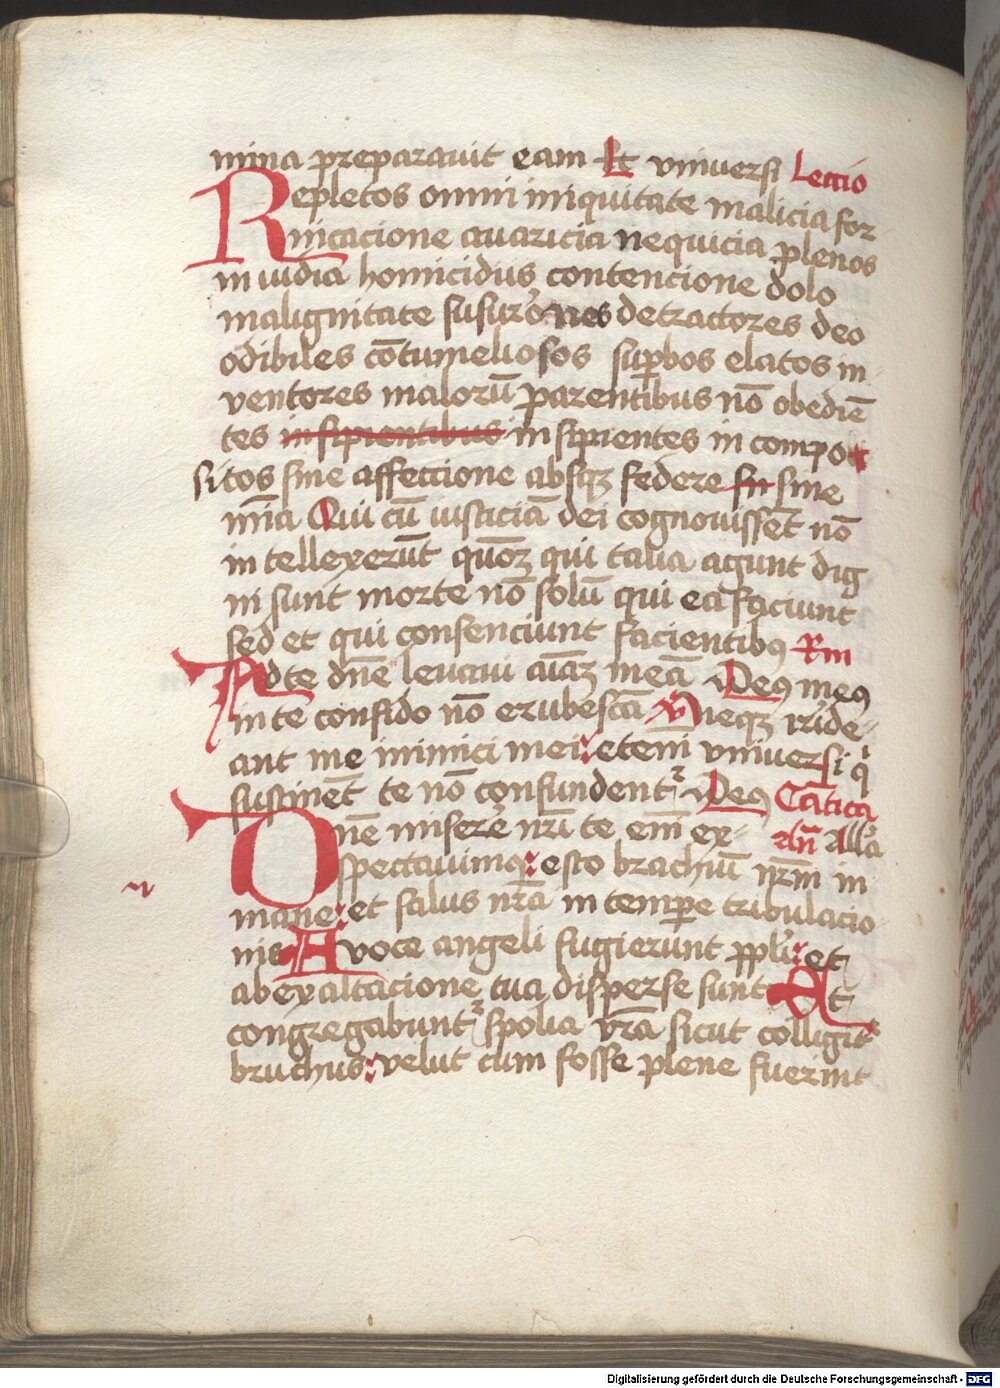 mina preparauit eam Et vniuersi Leccio
Repletos omni iniquitate malicia for
nicacione auaricia nequicia plenos
in uidia homicidijs contencione dolo
malignitate susurrones detractores deo
odibiles cōtumeliosos suꝑbos elatos in
ventores malorū parentibus nō obediē
tes insipientibus insipientes in compo
sitos sine affeccione absqꝫ federe sn sine
mīa Qui cū iusticiā dei cognouissēt nō
in tellexerūt quōꝫ qui talia agunt dig
ni sunt morte nō solū qui ea faciunt
sed et qui consenciunt facientibꝯ Rm
Ad te dn̄e leuaui aīaꝫ meā Deꝯ meꝯ
in te confido nō erubescā neqꝫ irride
ant me inimici mei etenī vniuersi q
sustinēt te nō confundent᷑ Deꝯ Cātica
Dn̄e miserere nr̄i te em̄ ex- Alla
spectauimꝯ esto brachiū nr̄m in
mane et salus nr̄a in tempore tribulacio
nis A voce angeli fugierunt ppli et
ab exaltacione tua disperse sunt Et
congregabunt᷑ spolia vr̄a sicut colligit᷑
bruchus velut cum fosse plene fuerint
Digitalisierung gefördert durch die Deutsche Forschungsgemeinschaft - DFG